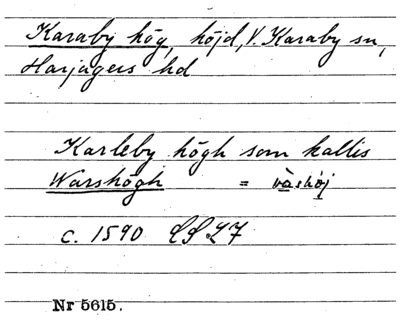 Karaby hög, höjd, V. Karaby sn,
Harjagers hd
Karleby högh som kallis
Warshögh = vàshöj
c. 1590 LSLF
Nr 5615.